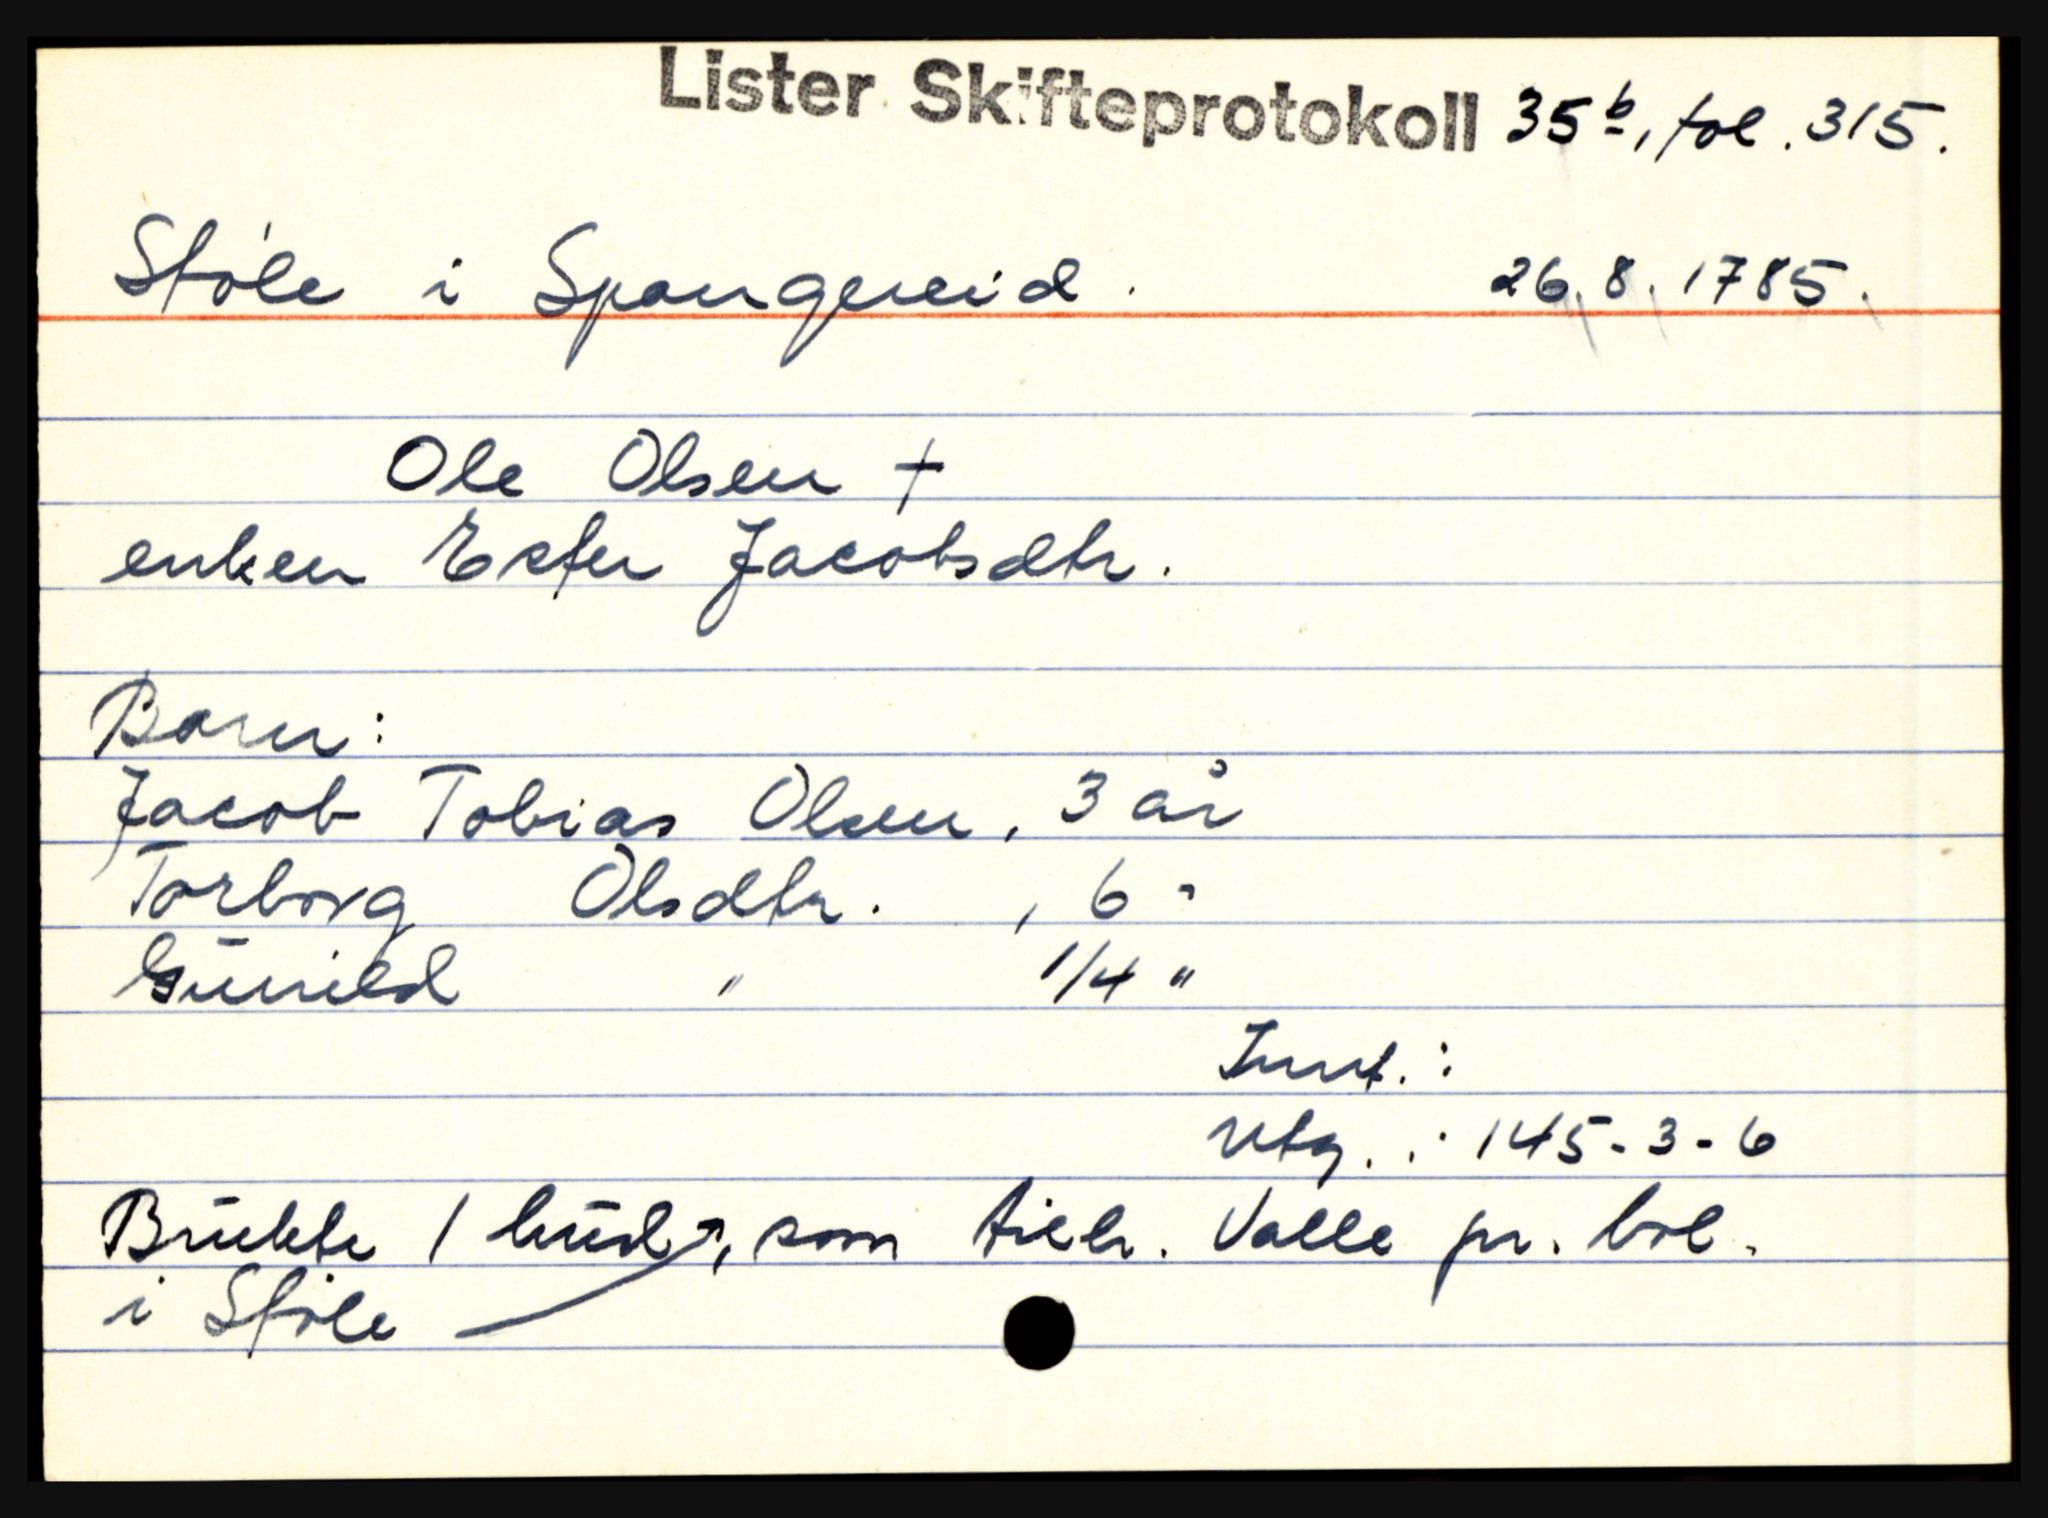 Lister Skifteprotokoll 35b, fol. 315.
Støle i Spangereid. 26.8.1785.
Ole Olsen †
enken Ester Jacobsdtr.
Barn:
Jacob Tobias Olsen, 3 år
Torborg Olsdtr. , 6 "
Gunild " 1/4 "
Innt. :
Utg. : 145-3-6
Brukte 1 hud, som tilh. Valle pr. bol.
i Støle